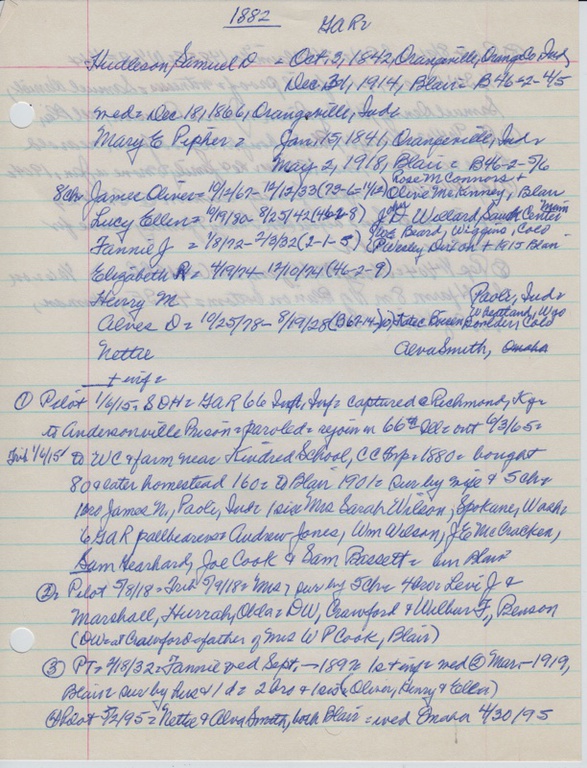 1882 GaR=
Hudleson, Samuel D = Oct. 3, 1842, Orangeville, Orange Co, Ind
Dec 31, 1914, Blair = B46-2-4/5
med = Dec 18, 1866, Orangeville, Ind
Mary E Pipher = Jan 15, 1841, Orangeville, Ind
May 2, 1918, Blair = B46-2-5/6
Rose McConnors +
8ch= James Oliver = 10/2/67-12/12/33 (73-6-1/2) Olive McKinney, Blair
Lucy Ellen = 10/9/80 - 8/25/42 (46-2-8) John D Wollard, Sauk Center Minn
Wm Beard, Wiggins, Colo
Fannie J = 1/8/72 - 2/3/32 (2-1-5) Presley Dixon + 1915 Blair
Elizabeth R = 4/19/74 - 12/10/71 (46-2-9)
Henry M Paoli, Ind
Wheatland, Wyo
Alves O = 10/25/78 - 8/19/28 (B67-14-) Boulder, Colo
Nettie Alva Smith, Omaha
+ wife =
① Pilot 1/6/15 = SDH = GaR 66 Ind, Inf = captured @ Richmond, Ky =
to Andersonville Prison = paroled = rejoin 66th = out 6/3/65 =
1/6/15 to WC + farm near Kindred School, CC Twp = 1880 = bought
80 + later homestead 160 = to Blair 1901 = sur by wife + 5ch +
1bro James M, Paoli, Ind + 1sis Mrs Sarah Wilson, Spokane, Wash =
6 GaR pallbearers = Andrew Jones, Wm Wilson, J E McCracken,
Sam Gearhard, Joe Cook + Sam Bassett = bur Blair
②= Pilot 5/8/18 = Trib 5/9/18 = Mrs = sur by 5ch = 4bro = Levi J +
Marshall, Hurrah, Okla = DW, Crawford + Wilbur F, Benson
(DW at Crawford = father of Mrs W P Cook, Blair)
③ PT = 2/18/32 = Fannie wed Sept, 1892 = wed ② Mar 1919,
Blair = sur by hus + 1d = 2bro + 1sis (Oliver, Henry + Ellen)
④ Pilot 5/2/95 = Nettie + Alva Smith, both Blair = wed Omaha 4/30/95